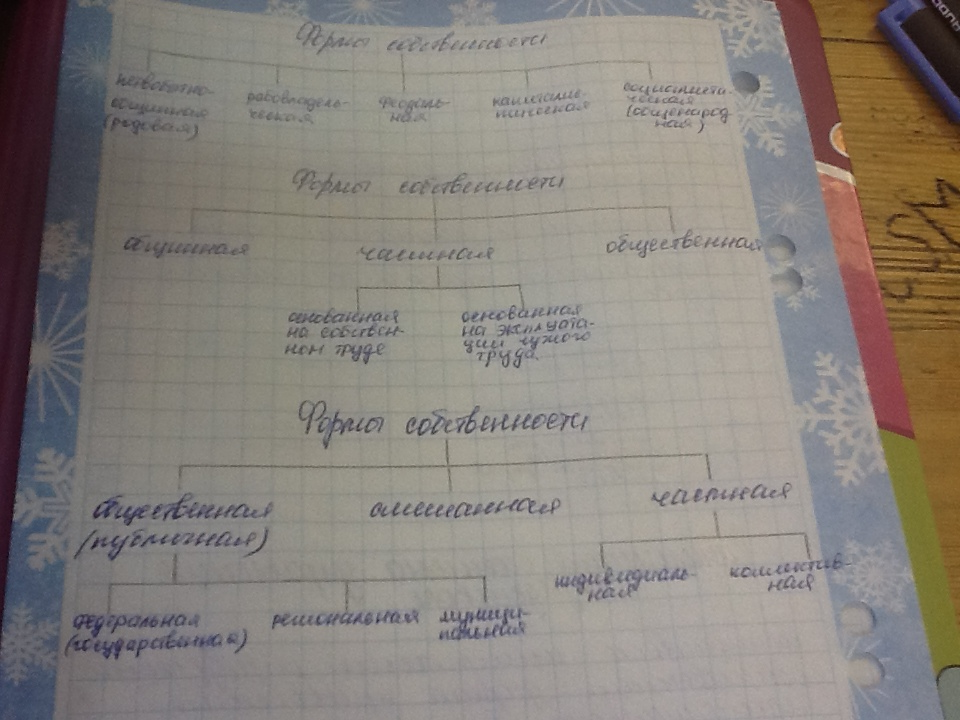 Формы собственности
первобытно-
общинная
(родовая)
рабовладель-
ческая
феодаль-
ная
капиталис-
тическая
социалисти-
ческая
(общенарод
ная)
Формы собственности
общинная частная общественная
основанная
на собствен-
ном труде
основанная
на эксплуата-
ции чужого
труда.
Формы собственности
общественная
(публичная)
смешанная
частная
индивидуаль-
ная
коллектив-
ная
федеральная
(государственная)
региональная
муници-
пальная